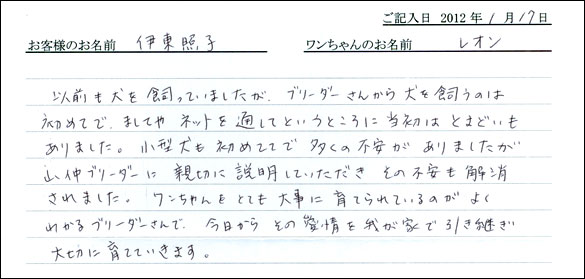 ご記入日 2012年 1月 17日
お客様のお名前 伊東照子 ワンちゃんのお名前 レオン
以前も犬を飼っていましたが、ブリーダーさんから犬を飼うのは
初めてで、ましてや ネットを通してというところに当初は とまどいも
ありました。小型犬も初めててで 多くの不安が ありましたが
山仲ブリーダーに 親切に説明していただき その不安も解消
されました。ワンちゃんをとても大事に育てられているのが よく
わかるブリーダーさんで、今日から その愛情を我が家で引き継ぎ
大切に育てていきます。